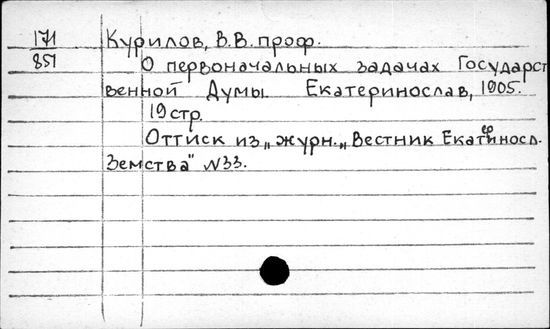 171 Курилов, В.В. проф.
851
О первоначальных задачах Государст
венной Думы. Екатеринослав, 1905.
19 стр.
Оттиск из „журн.„ Вестник Екатериносл.
Земства" №33.